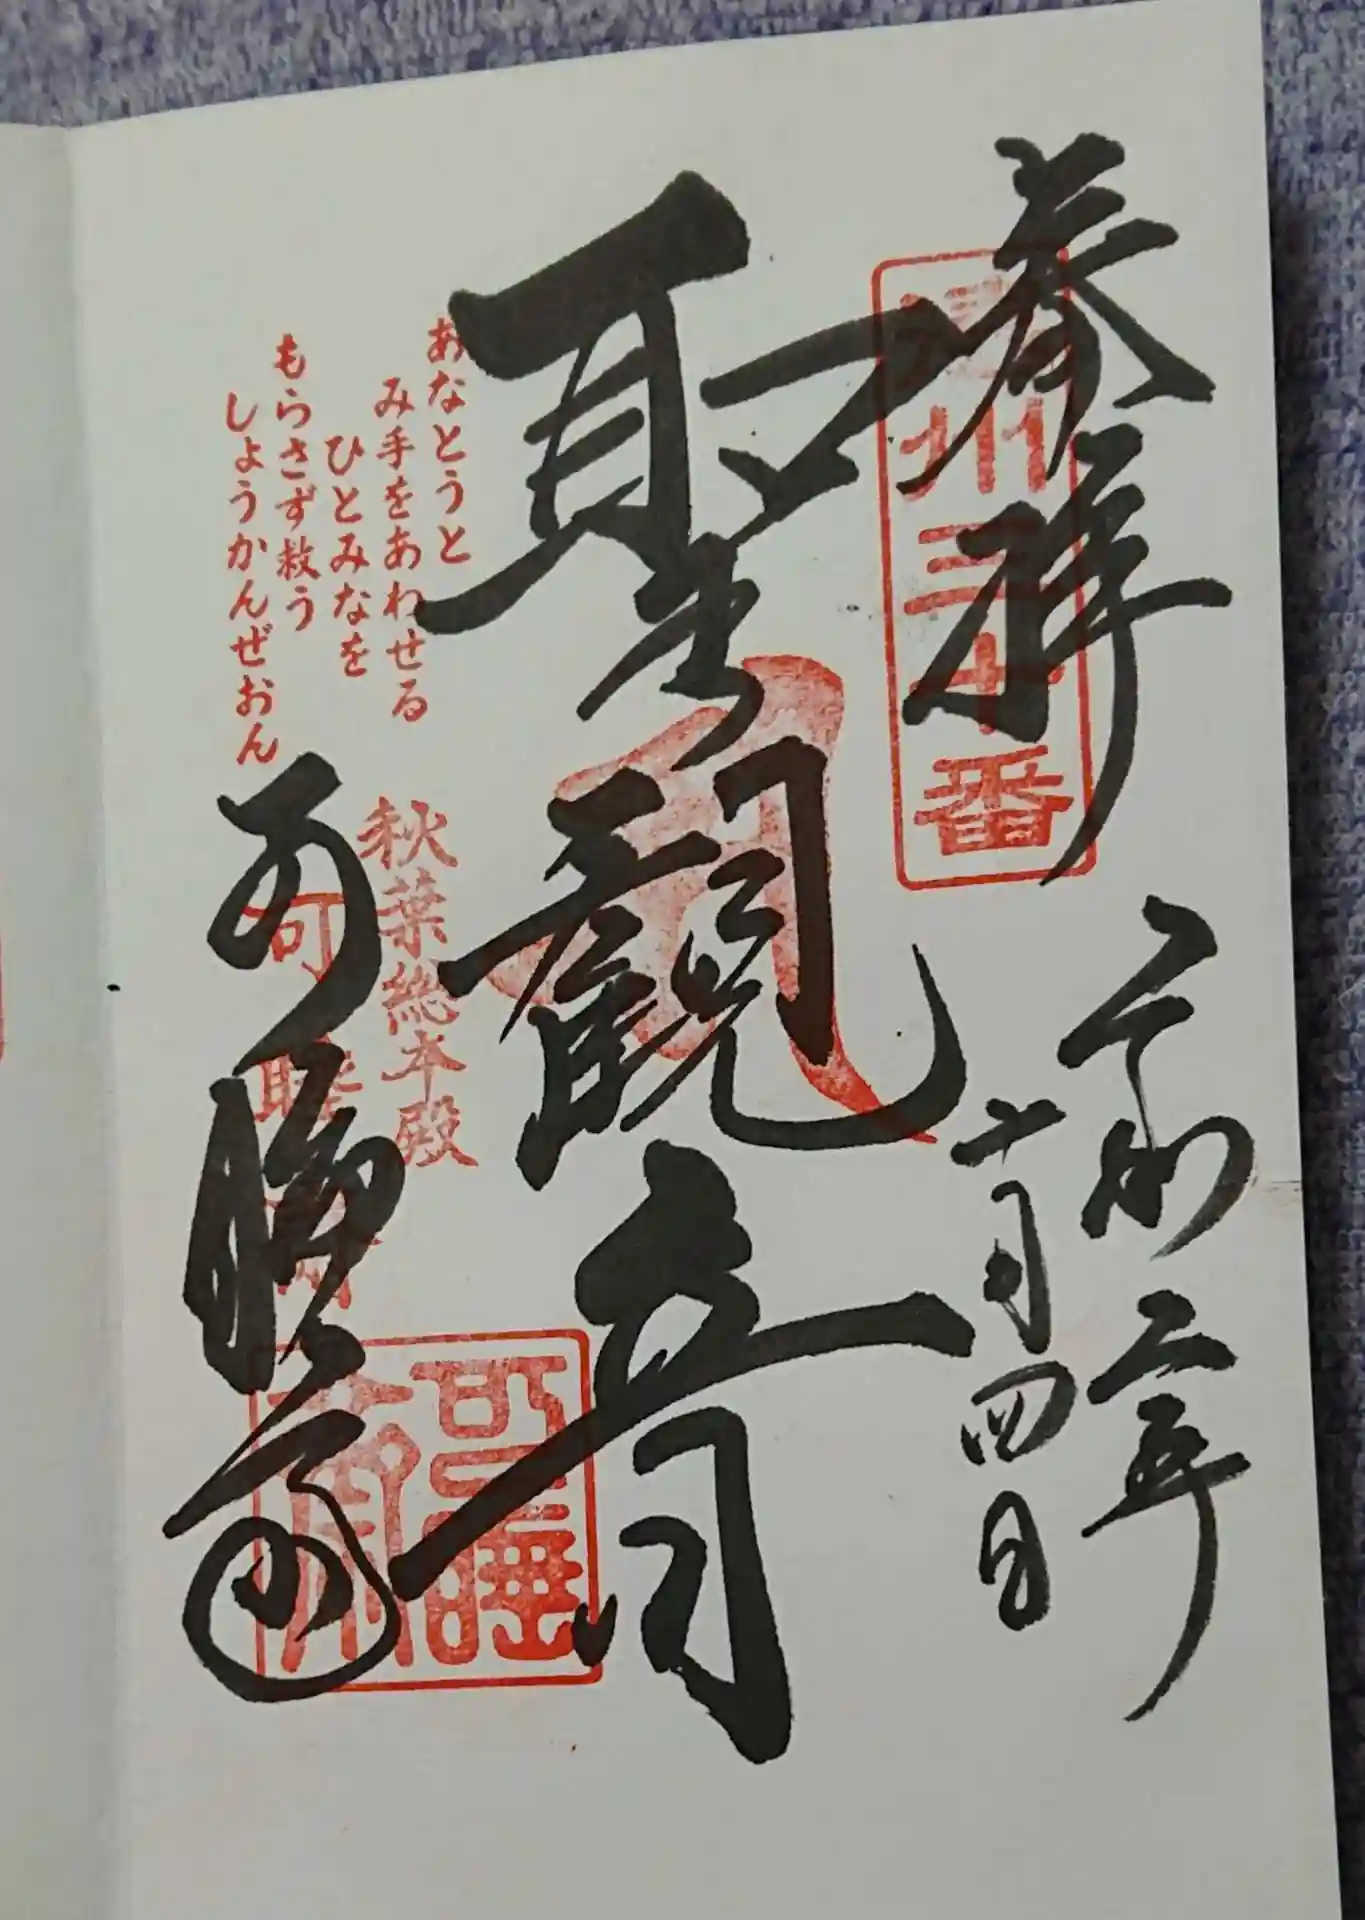 奉拝
遠州三十番
令和二年
十月四日
聖観音
あなとうと
み手をあわせる
ひとみなを
もらさず救う
しょうかんぜおん
秋葉総本殿
可睡斎
可睡斎